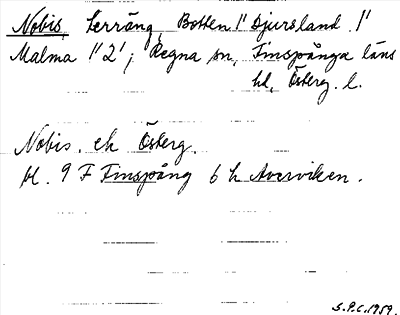 Nobis, terräng, Botten 1" Djursland 1"
Malma 1" 2'; Regna sn, Finspånga läns
hd, Österg. l.
Nobis. ek Österg.
bl. 9 F Finspång 6 h Averviken.
S.P.C. 1959.